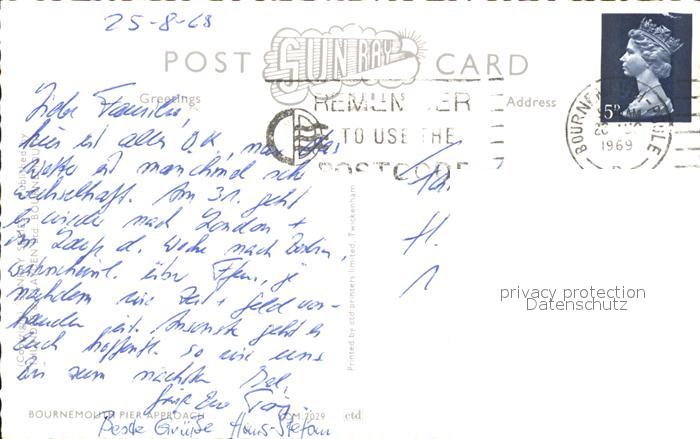 25-8-69
POST CARD
SUN RAY
SERIES
Greetings
Address
REMEMBER
TO USE THE
POSTCODE
5D
BOURNEMOUTH POOLE
1969
Liebe Familie,
hier ist alles O.K., nur das
Wetter ist manchmal sehr
wechselhaft. Am 31. geht
es wieder nach London +
im Lauf d. Woche nach
wahrscheinl. über je
nachdem wie Zeit + Geld vor-
handen ist. Ansonst geht es
Euch hoffentl. so wie uns
bis zum nächsten Mal,
Beste Grüße Hans-Stefan
BOURNEMOUTH PIER APPROACH
7029
ctd
Printed by ctd printers limited, Twickenham
privacy protection
Datenschutz